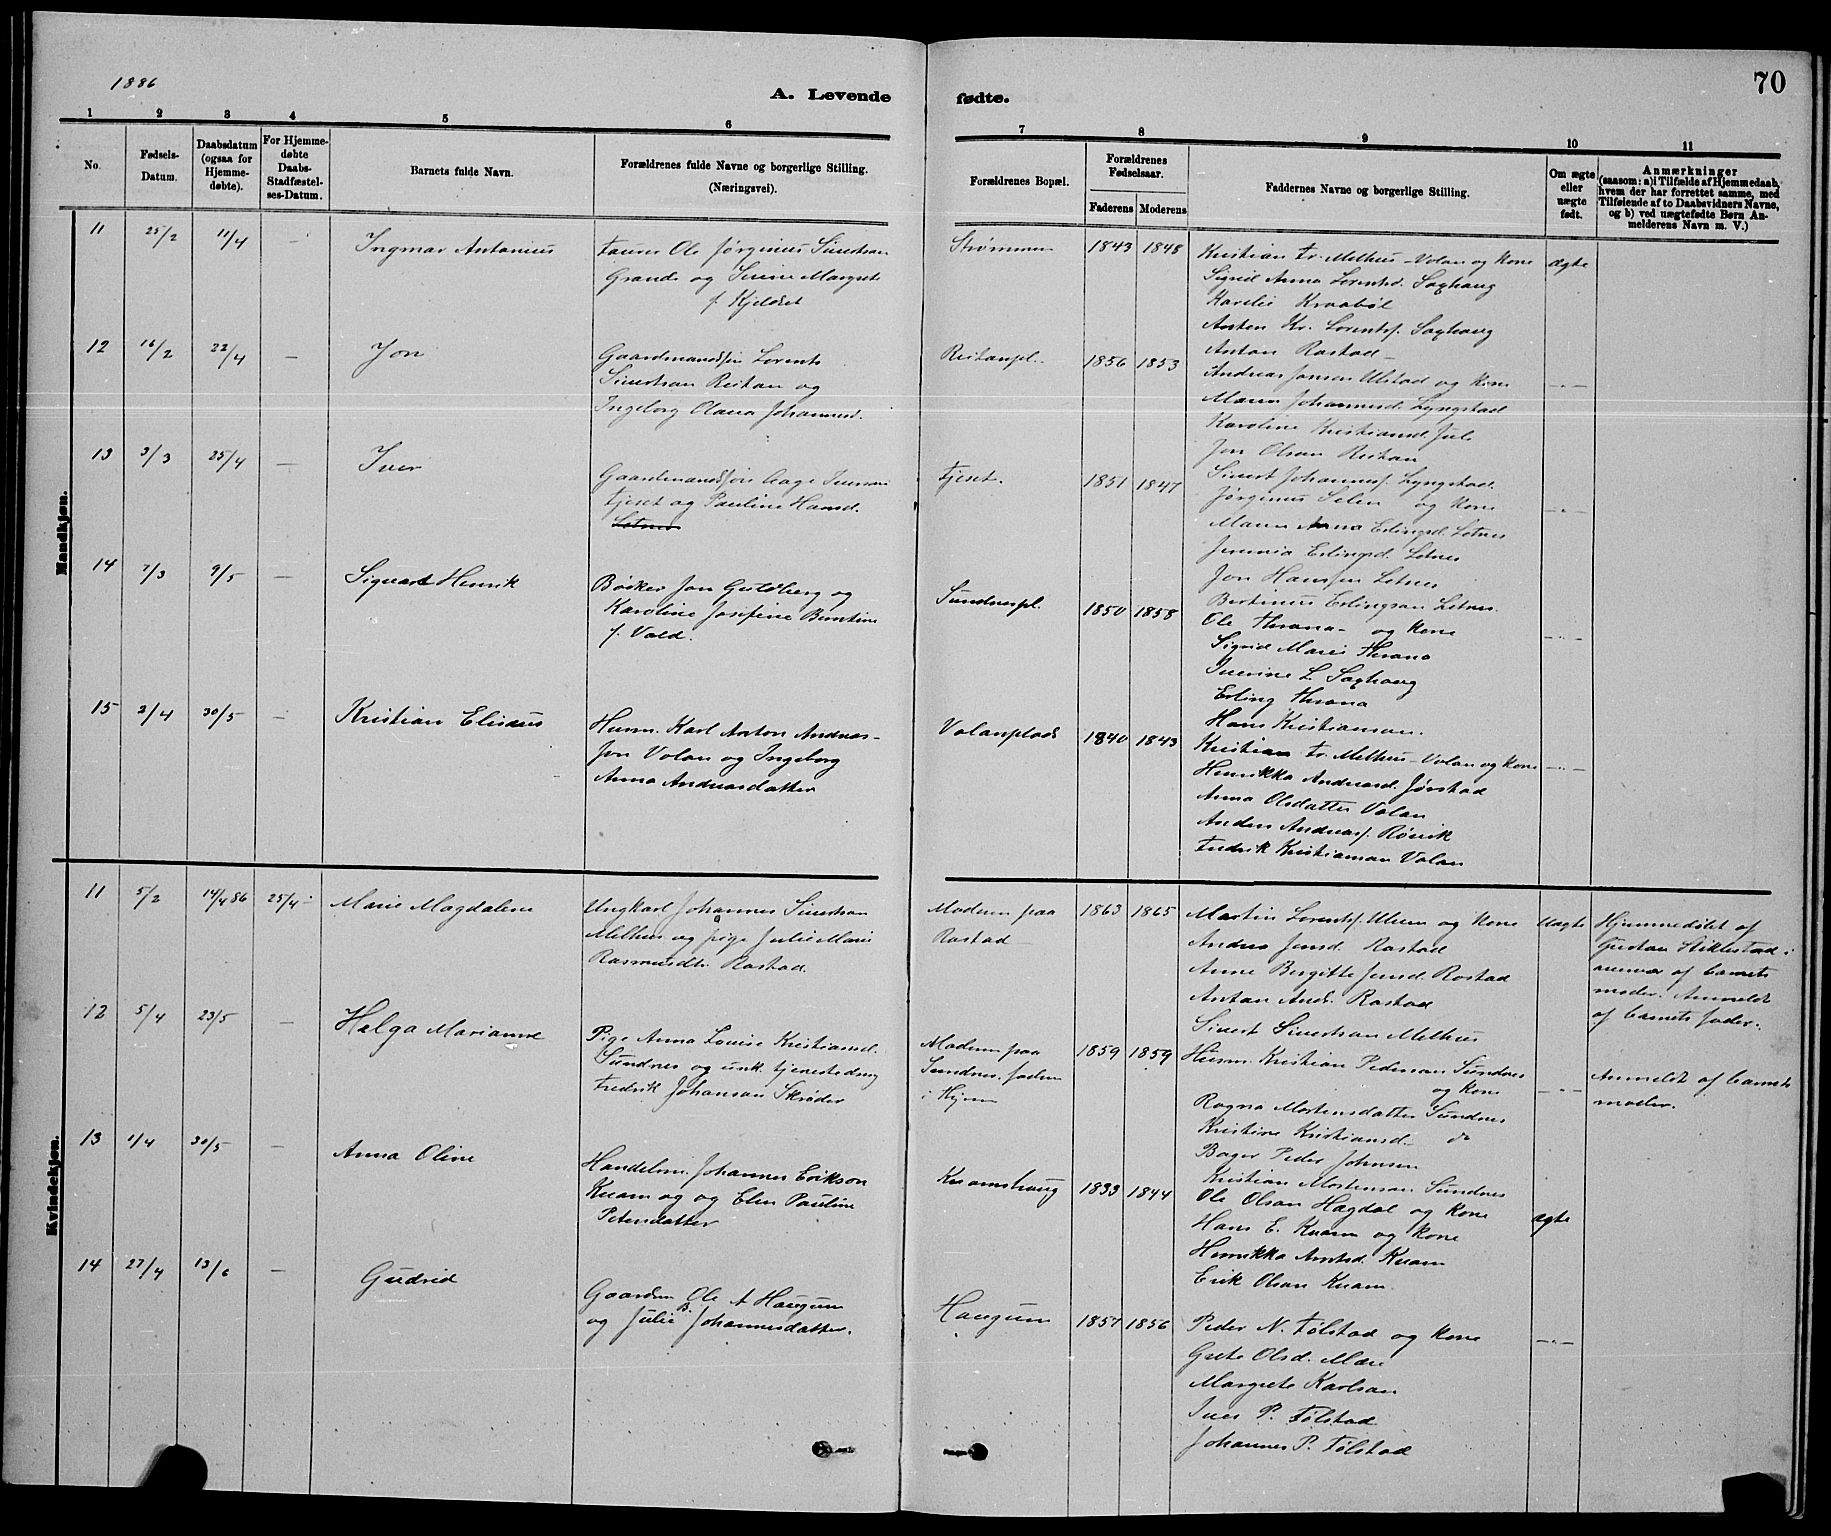 1886
A. Levende
fødte.
70
1 2 3 4 5 6
7 8 9 10 11
No.
Fødsels-Datum.
Daabsdatum (ogsaa for Hjemmedøbte).
For Hjemmedøbte Daabs-Stadfæstelses-Datum.
Barnets fulde Navn.
Forældrenes fulde Navne og borgerlige Stilling.
(Næringsvei).
Forældrenes Bopæl.
Forældrenes Fødselsaar.
Faderens Moderens
Faddernes Navne og borgerlige Stilling.
Om ægte eller uægte født.
Anmærkninger
(saasom: a) i Tilfælde af Hjemmedaab,
hvem der har forrettet samme, med
Tilføiende af to Daabsvidners Navne,
og b) ved uægtefødte Børn An-
melderens Navn m. V.)
Mandkjøn.
11 25/2 11/4 — Ingmar Antonius
Ole Jørginus Sivertsen
Grande og Serine Margrete
f. Kjeldset
Strømmen 1843 1848
Kristian Fr. Melhus-Volan og Kone
Sigrid Anna Lorentsd. Saxhaug
Karelie Kraabøl
Anton Kr. Lorentsf. Saxhaug
Anton Rostad
ægte
12 16/2 22/4 — Jon
Gaardmandssøn Lorents
Sivertsen Reitan og
Ingeborg Olava Johannesd.
Reitanpl. 1856 1853
Andreas Jonsen Ulstad og Kone
Maren Johannesd. Lyngstad
Karoline Kristiansd. Jule
Jon Olsen Reitan
Sivert Johannesf. Lyngstad.
— " —
13 3/3 25/4 — Iver
Gaardmandssøn Aage Iversen
Tjeset og Pauline Hansd.
Letnes
Tjeset. 1851 1847
Jørginus Selen og Kone
Maren Anna Erlingsd. Letnes
Jeremia Erlingsd. Letnes
Jon Hansen Letnes
Bertinus Erlingsen Letnes.
— " —
14 7/3 9/5 — Sigvart Henrik
Bødker Jon Guldberg og
Karoline Josefine Berntine
f. Vold.
Sundnespl. 1850 1858
Ole Thrana og Kone
Sigrid Marie Thrana
Iverine L. Saxhaug
Erling Thrana
Hans Kristiansen.
— " —
15 2/4 30/5 — Kristian Eliseus
Husm. Karl Anton Andreas-
sen Volan og Ingeborg
Anna Andreasdatter
Volanplads 1840 1843
Kristian Fr. Melhus-Volan og Kone
Henrikka Andreasd. Jørstad
Anna Olsdatter Volan
Anders Andreasf. Røsvik
Fredrik Kristiansen Volan
— " —
Kvindekjøn.
11 5/2 14/4 86 25/4 Marie Magdalene
Ungkarl Johannes Sivertsen
Melhus og pige Julie Marie
Rasmusdtr. Rostad.
Moderen paa
Rostad
1863 1865
Martin Lorentsf. Ulven og Kone
Andrea Jensd. Rostad
Anne Birgitte Jensd. Rostad
Anton Andr. Rostad
Sivert Sivertsen Melhus
Uægte
Hjemmedøbt af
Gustav Stiklestad i
nærvær af barnets
moder. Anmeldt
af barnets fader.
12 5/4 23/5 — Helga Marianne
Pige Anna Lovise Kristiansd.
Sundnes og unk. tjenestedreng
Fredrik Johansen Skrøder
Moderen paa
Sundnes. faderen
i Hyven
1859 1859
Husm. Kristian Pedersen Sundnes
og Kone
Ragna Mortensdatter Sundnes
Kristine Kristiansd. do
Bager Peder Johnsen
Kristian Mortensen Sundnes
— " —
Anmeldt af barnets
moder.
13 1/4 30/5 — Anna Oline
Handelsm. Johannes Erikson
Kvam og og Elen Pauline
Petersdatter
Kvamshaug 1833 1844
Ole Olsen Hegdal og Kone
Hans E. Kvam og Kone
Henrikka Arntsd. Kvam
Erik Olsen Kvam
ægte
14 27/4 13/6 — Gudrid
Gaardm. Ole A Haugum
og Julie B. Johannesdatter.
Haugum 1857 1856
Peder N. Følstad og Kone
Grete Olsd. Mære
Margrete Karlsen
Iver P. Følstad
Johannes P. Følstad
— " —